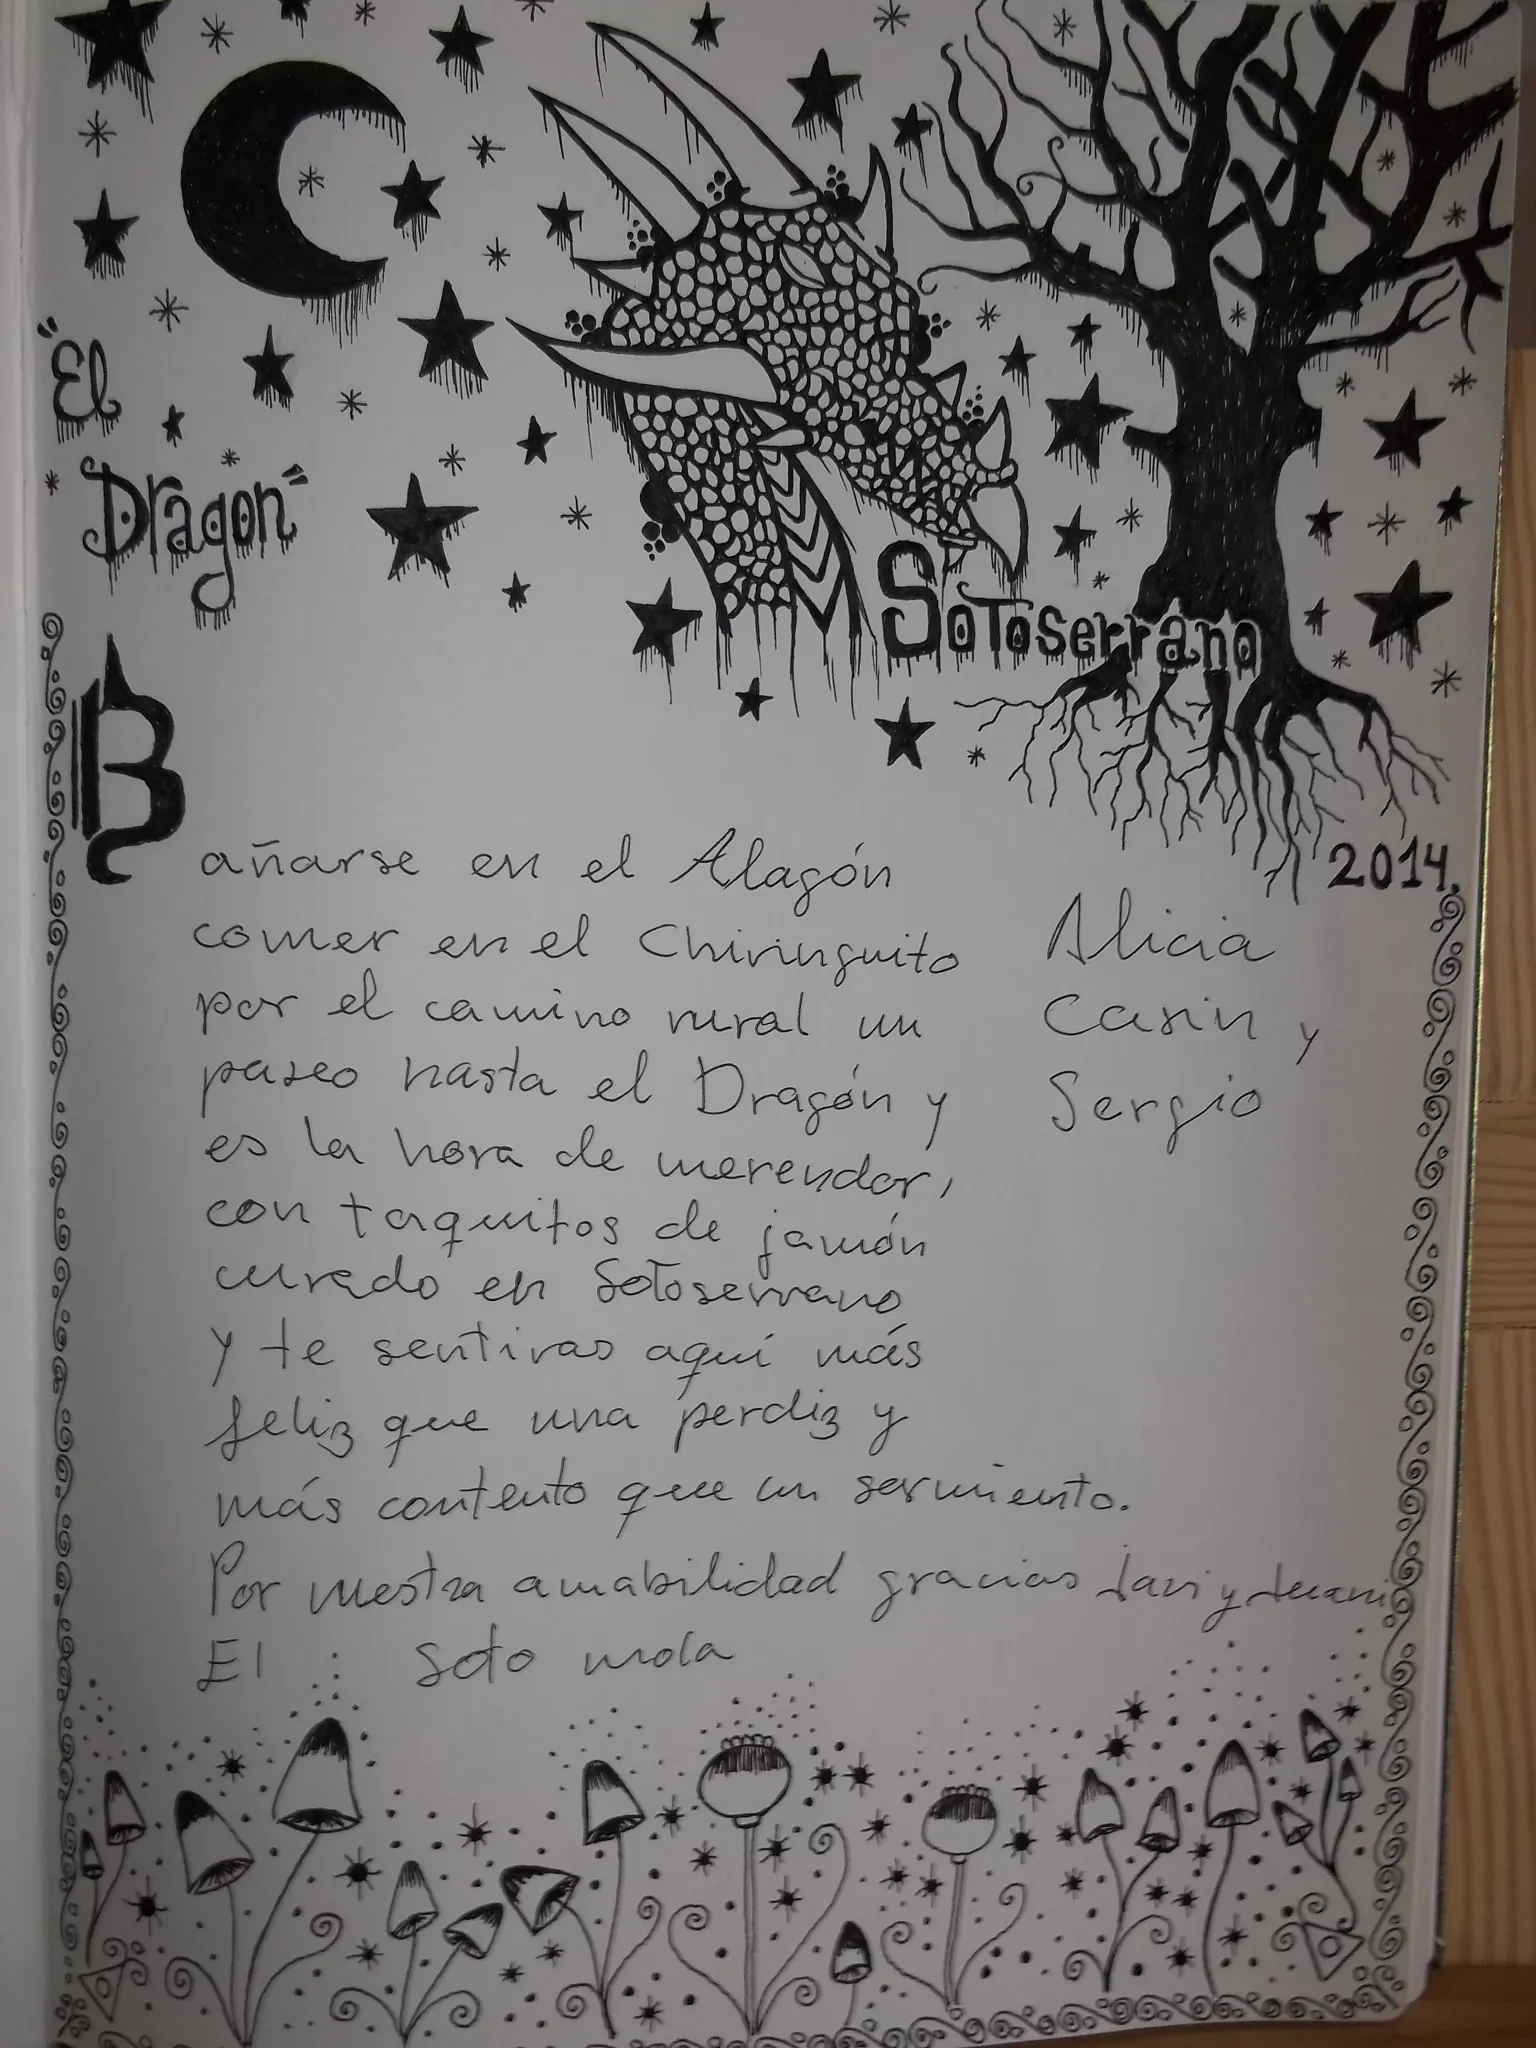 "El
Dragon"
Sotoserrano
2014.
Bañarse en el Alagón
comer en el Chiringuito
por el camino rural un
paseo hasta el Dragón y
es la hora de merendar,
con taquitos de jamón
curado en Sotoserrano
y te sentiras aquí más
feliz que una perdiz y
más contento que un sarmiento.
Por vuestra amabilidad gracias Javi y
El Soto mola
Alicia
Casin y
Sergio